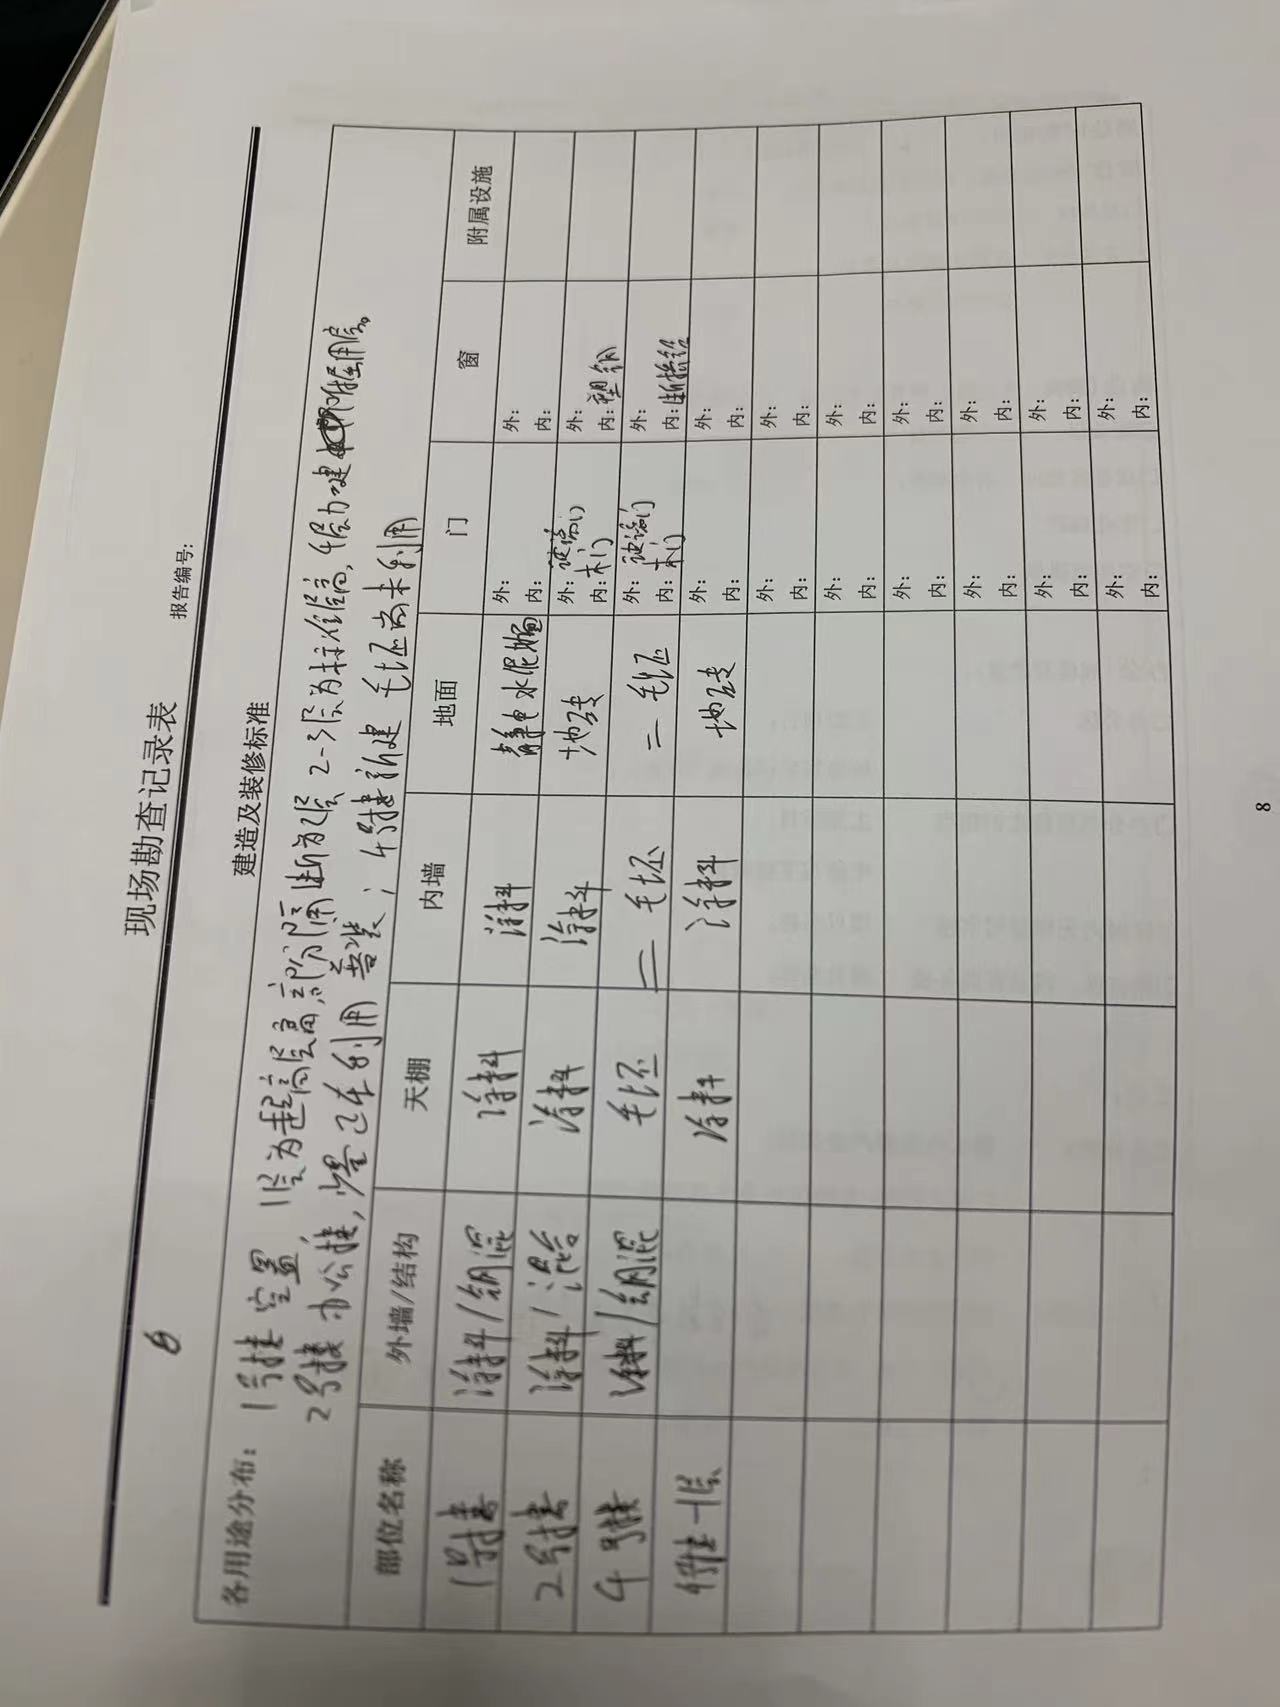 现场勘查记录表
报告编号:
建造及装修标准
各用途分布: 1号楼 空置 1层为超高层高,部分隔断为2层 2-3层为标准层高, 4层为 附属用房。
2号楼 办公楼, 正在利用 普装; 4号楼 新建 毛坯尚未利用
部位名称 外墙/结构 天棚 内墙 地面 门 窗 附属设施
1号楼 涂料/钢混 涂料 涂料 水泥地面 外: 内: 外: 内:
2号楼 涂料/混合 涂料 涂料 地砖 外: 玻璃门 内: 木门 外: 内: 塑钢
4号楼 涂料/钢混 毛坯 = 毛坯 = 毛坯 外: 玻璃门 内: 木门 外: 内: 断桥铝
4号楼一层 涂料 涂料 地砖 外: 内: 外: 内:
外: 内: 外: 内:
外: 内: 外: 内:
外: 内: 外: 内:
外: 内: 外: 内:
外: 内: 外: 内:
外: 内: 外: 内:
8